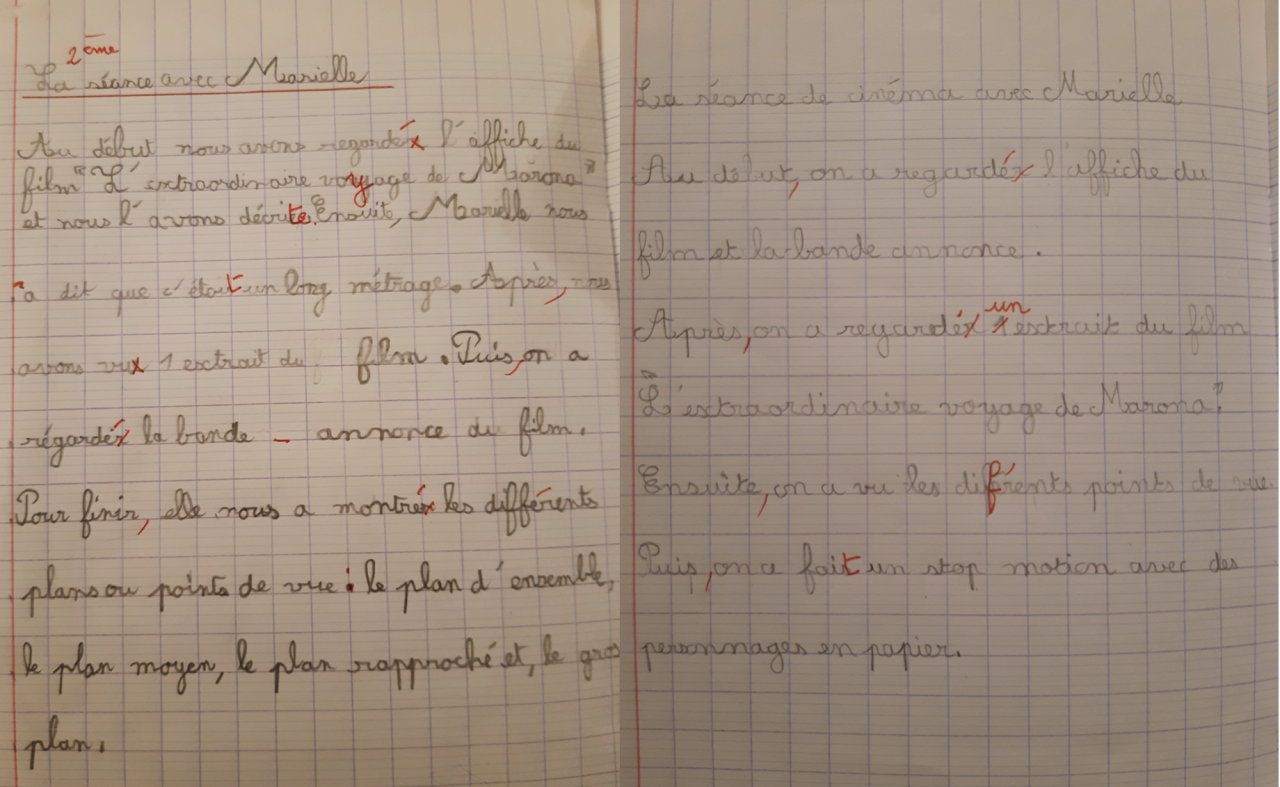 2ème
La séance avec Marielle
Au début nous avons regardé l'affiche du
film "L'extraordinaire voyage de Marona"
et nous l'avons décrite. Ensuite, Marielle nous
a dit que c'était un long métrage. Après, nous
avons vu 1 extrait du film. Puis, on a
régardé la bande - annonce du film.
Pour finir, elle nous a montré les différents
plans ou points de vue : le plan d'ensemble,
le plan moyen, le plan rapproché et, le gros
plan.
La séance de cinéma avec Marielle
Au début, on a regardé l'affiche du
film et la bande annonce.
Après, on a regardé un extrait du film
"L'extraordinaire voyage de Marona".
Ensuite, on a vu les diférents points de vue.
Puis, on a fait un stop motion avec des
personnages en papier.